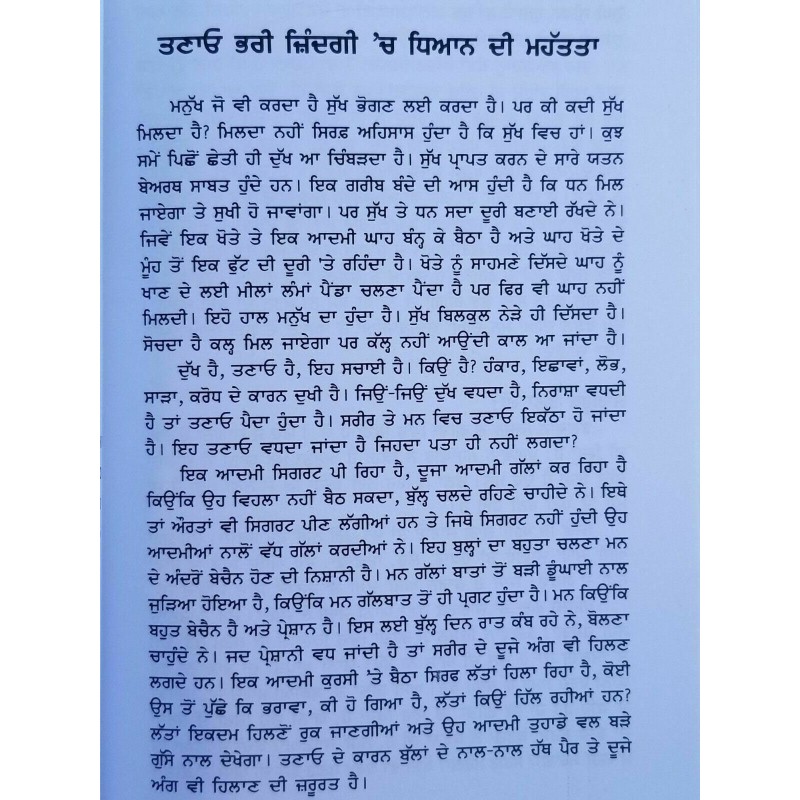 ਤਣਾਓ ਭਰੀ ਜ਼ਿੰਦਗੀ ’ਚ ਧਿਆਨ ਦੀ ਮਹੱਤਤਾ
ਮਨੁੱਖ ਜੋ ਵੀ ਕਰਦਾ ਹੈ ਸੁੱਖ ਭੋਗਣ ਲਈ ਕਰਦਾ ਹੈ। ਪਰ ਕੀ ਕਦੀ ਸੁੱਖ
ਮਿਲਦਾ ਹੈ? ਮਿਲਦਾ ਨਹੀਂ ਸਿਰਫ਼ ਅਹਿਸਾਸ ਹੁੰਦਾ ਹੈ ਕਿ ਸੁੱਖ ਵਿਚ ਹਾਂ। ਕੁਝ
ਸਮੇਂ ਪਿਛੋਂ ਛੇਤੀ ਹੀ ਦੁੱਖ ਆ ਚਿੰਬੜਦਾ ਹੈ। ਸੁੱਖ ਪ੍ਰਾਪਤ ਕਰਨ ਦੇ ਸਾਰੇ ਯਤਨ
ਬੇਅਰਥ ਸਾਬਤ ਹੁੰਦੇ ਹਨ। ਇਕ ਗਰੀਬ ਬੰਦੇ ਦੀ ਆਸ ਹੁੰਦੀ ਹੈ ਕਿ ਧਨ ਮਿਲ
ਜਾਏਗਾ ਤੇ ਸੁਖੀ ਹੋ ਜਾਵਾਂਗਾ। ਪਰ ਸੁੱਖ ਤੇ ਧਨ ਸਦਾ ਦੂਰੀ ਬਣਾਈ ਰੱਖਦੇ ਨੇ।
ਜਿਵੇਂ ਇਕ ਖੋਤੇ ਤੇ ਇਕ ਆਦਮੀ ਘਾਹ ਬੰਨ੍ਹ ਕੇ ਬੈਠਾ ਹੈ ਅਤੇ ਘਾਹ ਖੋਤੇ ਦੇ
ਮੂੰਹ ਤੋਂ ਇਕ ਫੁੱਟ ਦੀ ਦੂਰੀ 'ਤੇ ਰਹਿੰਦਾ ਹੈ। ਖੋਤੇ ਨੂੰ ਸਾਹਮਣੇ ਦਿੱਸਦੇ ਘਾਹ ਨੂੰ
ਖਾਣ ਦੇ ਲਈ ਮੀਲਾਂ ਲੰਮਾਂ ਪੈਂਡਾ ਚਲਣਾ ਪੈਂਦਾ ਹੈ ਪਰ ਫਿਰ ਵੀ ਘਾਹ ਨਹੀਂ
ਮਿਲਦੀ। ਇਹੋ ਹਾਲ ਮਨੁੱਖ ਦਾ ਹੁੰਦਾ ਹੈ। ਸੁੱਖ ਬਿਲਕੁਲ ਨੇੜੇ ਹੀ ਦਿੱਸਦਾ ਹੈ।
ਸੋਚਦਾ ਹੈ ਕਲ੍ਹ ਮਿਲ ਜਾਏਗਾ ਪਰ ਕੱਲ੍ਹ ਨਹੀਂ ਆਉਂਦੀ ਕਾਲ ਆ ਜਾਂਦਾ ਹੈ।
ਦੁੱਖ ਹੈ, ਤਣਾਓ ਹੈ, ਇਹ ਸਚਾਈ ਹੈ। ਕਿਉਂ ਹੈ? ਹੰਕਾਰ, ਇਛਾਵਾਂ, ਲੋਭ,
ਸਾੜਾ, ਕਰੋਧ ਦੇ ਕਾਰਨ ਦੁਖੀ ਹੈ। ਜਿਉਂ-ਜਿਉਂ ਦੁੱਖ ਵਧਦਾ ਹੈ, ਨਿਰਾਸ਼ਾ ਵਧਦੀ
ਹੈ ਤਾਂ ਤਣਾਓ ਪੈਦਾ ਹੁੰਦਾ ਹੈ। ਸਰੀਰ ਤੇ ਮਨ ਵਿਚ ਤਣਾਓ ਇਕੱਠਾ ਹੋ ਜਾਂਦਾ
ਹੈ। ਇਹ ਤਣਾਓ ਵਧਦਾ ਜਾਂਦਾ ਹੈ ਜਿਹਦਾ ਪਤਾ ਹੀ ਨਹੀਂ ਲਗਦਾ?
ਇਕ ਆਦਮੀ ਸਿਗਰਟ ਪੀ ਰਿਹਾ ਹੈ, ਦੂਜਾ ਆਦਮੀ ਗੱਲਾਂ ਕਰ ਰਿਹਾ ਹੈ
ਕਿਉਂਕਿ ਉਹ ਵਿਹਲਾ ਨਹੀਂ ਬੈਠ ਸਕਦਾ, ਬੁੱਲ੍ਹ ਚਲਦੇ ਰਹਿਣੇ ਚਾਹੀਦੇ ਨੇ। ਇਥੇ
ਤਾਂ ਔਰਤਾਂ ਵੀ ਸਿਗਰਟ ਪੀਣ ਲੱਗੀਆਂ ਹਨ ਤੇ ਜਿਥੇ ਸਿਗਰਟ ਨਹੀਂ ਹੁੰਦੀ ਉਹ
ਆਦਮੀਆਂ ਨਾਲੋਂ ਵੱਧ ਗੱਲਾਂ ਕਰਦੀਆਂ ਨੇ। ਇਹ ਬੁਲ੍ਹਾਂ ਦਾ ਬਹੁਤਾ ਚਲਣਾ ਮਨ
ਦੇ ਅੰਦਰੋਂ ਬੇਚੈਨ ਹੋਣ ਦੀ ਨਿਸ਼ਾਨੀ ਹੈ। ਮਨ ਗੱਲਾਂ ਬਾਤਾਂ ਤੋਂ ਬੜੀ ਡੂੰਘਾਈ ਨਾਲ
ਜੁੜਿਆ ਹੋਇਆ ਹੈ, ਕਿਉਂਕਿ ਮਨ ਗੱਲਬਾਤ ਤੋਂ ਹੀ ਪ੍ਰਗਟ ਹੁੰਦਾ ਹੈ। ਮਨ ਕਿਉਂਕਿ
ਬਹੁਤ ਬੇਚੈਨ ਹੈ ਅਤੇ ਪ੍ਰੇਸ਼ਾਨ ਹੈ। ਇਸ ਲਈ ਬੁੱਲ੍ਹ ਦਿਨ ਰਾਤ ਕੰਬ ਰਹੇ ਨੇ, ਬੋਲਣਾ
ਚਾਹੁੰਦੇ ਨੇ। ਜਦ ਪ੍ਰੇਸ਼ਾਨੀ ਵਧ ਜਾਂਦੀ ਹੈ ਤਾਂ ਸਰੀਰ ਦੇ ਦੂਜੇ ਅੰਗ ਵੀ ਹਿਲਣ
ਲਗਦੇ ਹਨ। ਇਕ ਆਦਮੀ ਕੁਰਸੀ ’ਤੇ ਬੈਠਾ ਸਿਰਫ ਲੱਤਾਂ ਹਿਲਾ ਰਿਹਾ ਹੈ, ਕੋਈ
ਉਸ ਤੋਂ ਪੁੱਛੇ ਕਿ ਭਰਾਵਾ, ਕੀ ਹੋ ਗਿਆ ਹੈ, ਲੱਤਾਂ ਕਿਉਂ ਹਿੱਲ ਰਹੀਆਂ ਹਨ?
ਲੱਤਾਂ ਇਕਦਮ ਹਿਲਣੋਂ ਰੁਕ ਜਾਣਗੀਆਂ ਅਤੇ ਉਹ ਆਦਮੀ ਤੁਹਾਡੇ ਵਲ ਬੜੇ
ਗੁੱਸੇ ਨਾਲ ਦੇਖੇਗਾ। ਤਣਾਓ ਦੇ ਕਾਰਨ ਬੁੱਲਾਂ ਦੇ ਨਾਲ-ਨਾਲ ਹੱਥ ਪੈਰ ਤੇ ਦੂਜੇ
ਅੰਗ ਵੀ ਹਿਲਾਣ ਦੀ ਜ਼ਰੂਰਤ ਹੈ।